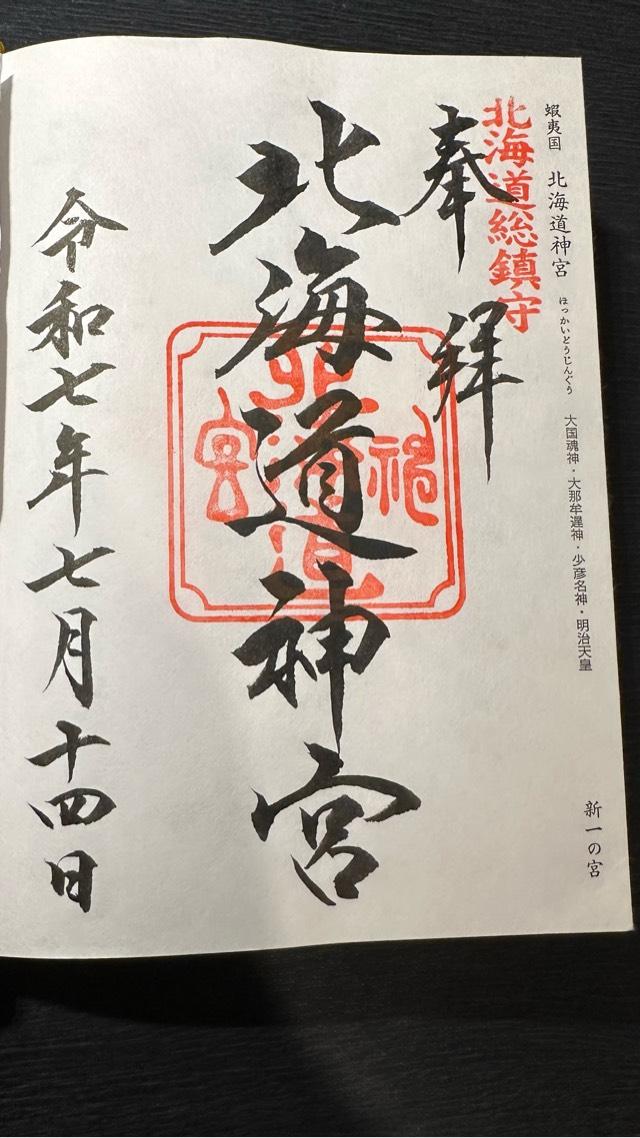 蝦夷国 北海道神宮 ほっかいどうじんぐう 大国魂神・大那牟遅神・少彦名神・明治天皇 新一の宮
北海道総鎮守
奉拝
北海道神宮
北海道神宮
令和七年七月十四日